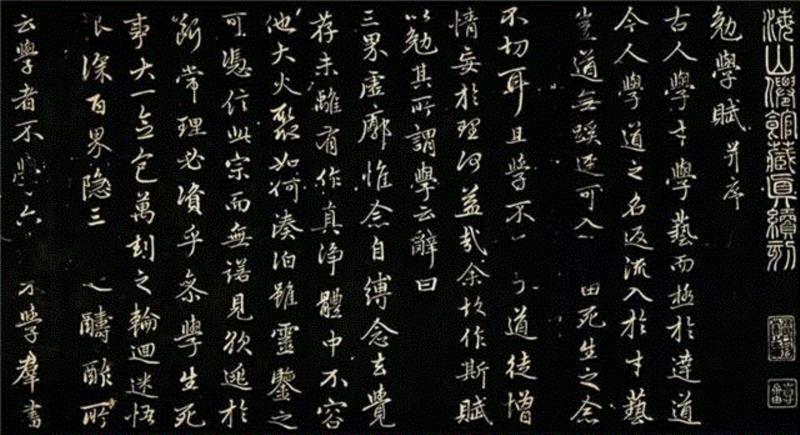 海山僊館藏真續刻
勉學賦并序
古人學才學藝而極於達道
今人學道之名返流入於才藝
豈道無蹊逕可入 由死生之念
不切耳且學不 道徒增
情妄於理何益哉余故作斯賦
以勉其所謂學云辭曰
三界虛廓惟念自縛念去覺
存未離有作真淨體中不容
他大火聚如何湊泊雖靈鑒之
可憑信此宗而無諾見欲逃於
斷常理必資乎參學生死
事大一念包萬劫之輪迴迷悟
深百界隱三 之疇酢所
云學者不學六 才學群書